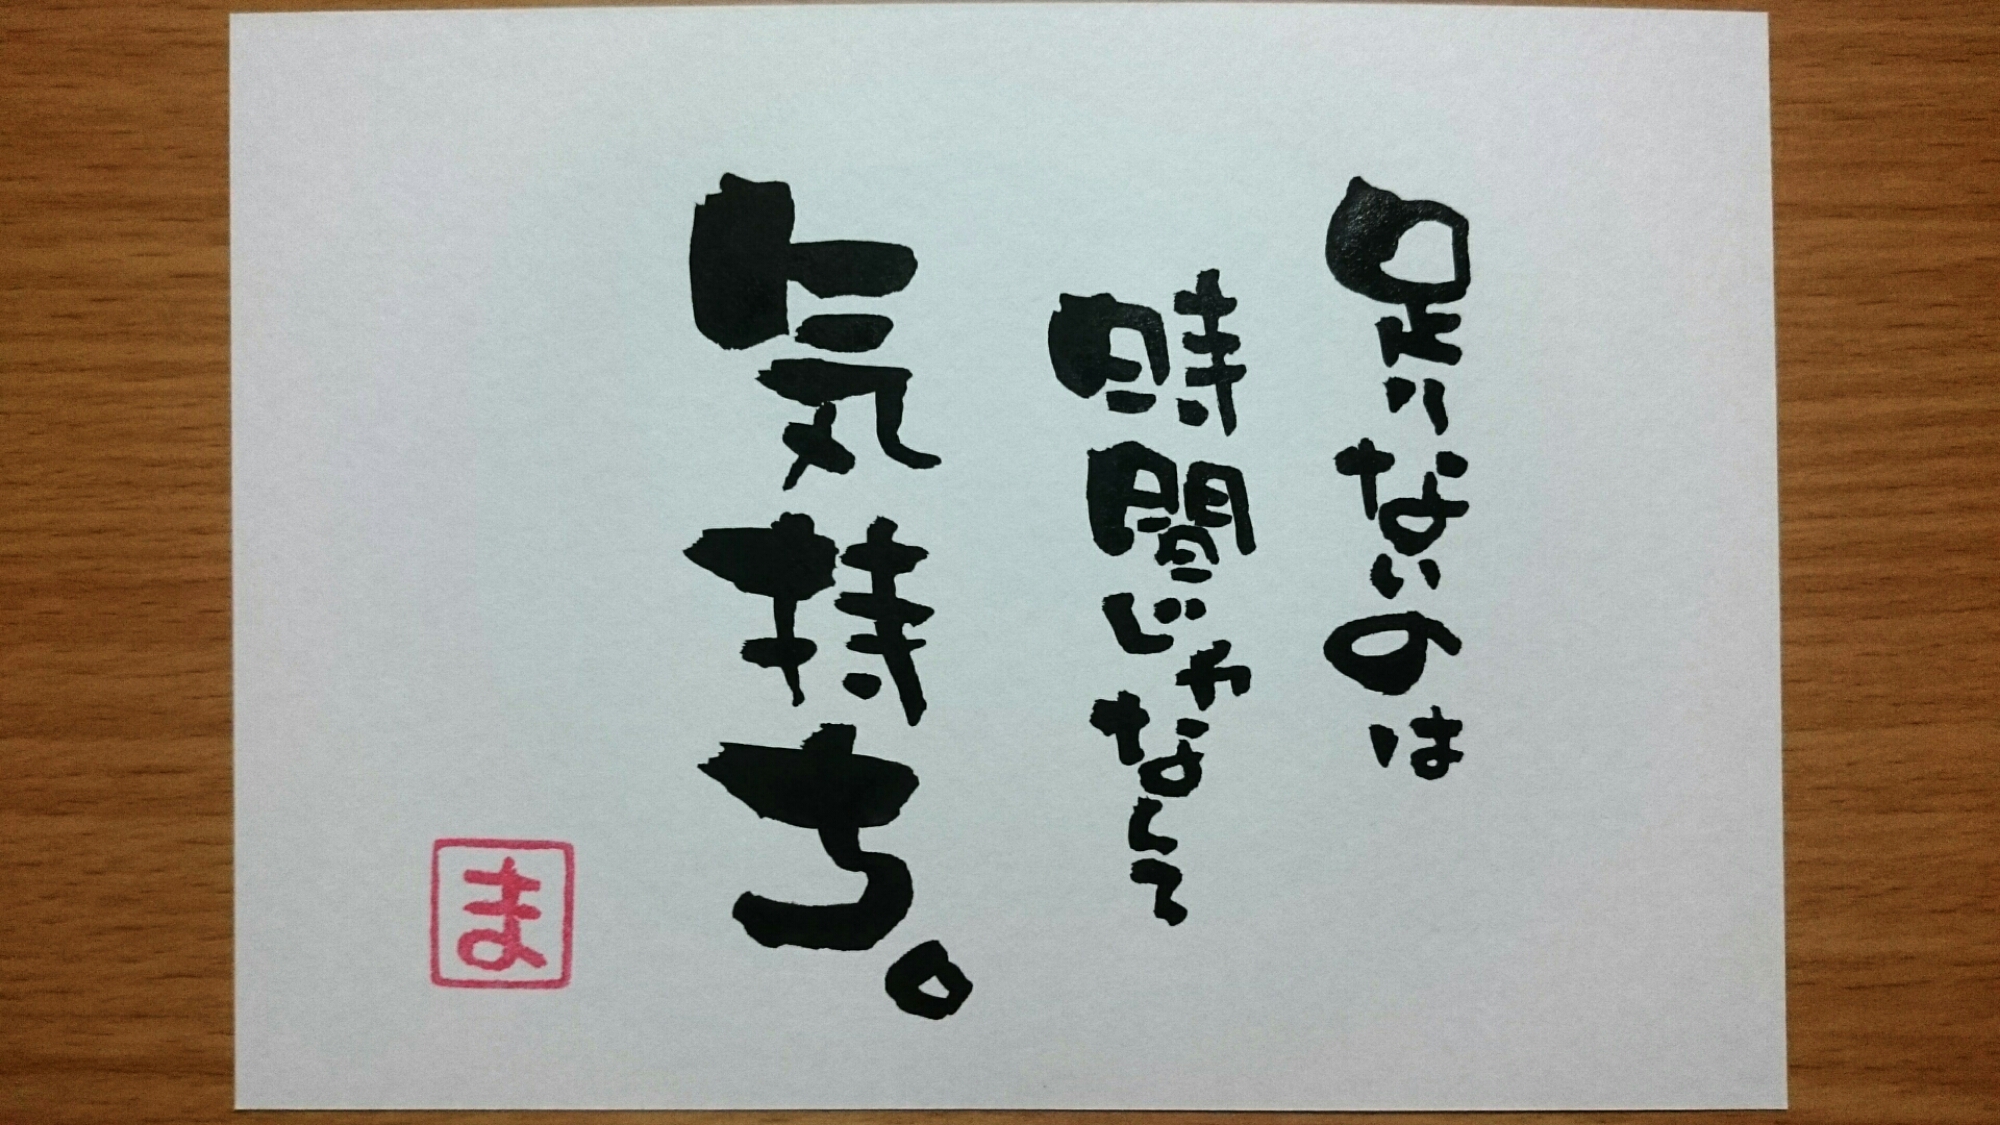 足りないのは
時間じゃなくて
気持ち。
ま